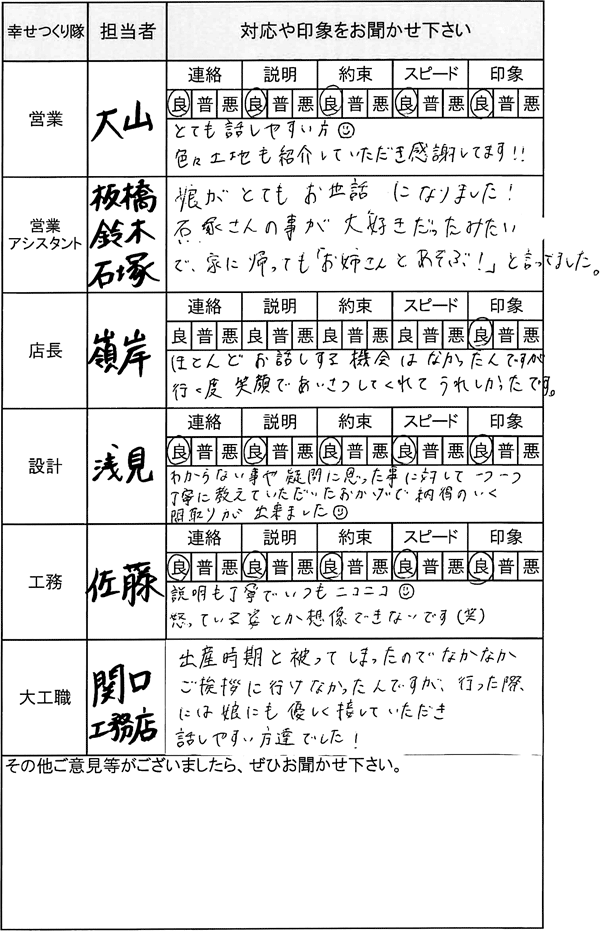 幸せつくり隊 担当者 対応や印象をお聞かせ下さい
営業 大山
連絡 説明 約束 スピード 印象
良 普 悪 良 普 悪 良 普 悪 良 普 悪 良 普 悪
とても話しやすい方☺
色々土地も紹介していただき感謝してます!!
営業アシスタント
板橋
鈴木
石塚
娘がとてもお世話になりました!
石塚さんの事が大好きだったみたい
で、家に帰っても「お姉さんとあそぶ!」と言ってました。
店長 嶺岸
連絡 説明 約束 スピード 印象
良 普 悪 良 普 悪 良 普 悪 良 普 悪 良 普 悪
ほとんどお話しする機会はなかったんですが
行く度笑顔であいさつしてくれてうれしかったです。
設計 浅見
連絡 説明 約束 スピード 印象
良 普 悪 良 普 悪 良 普 悪 良 普 悪 良 普 悪
わからない事や疑問に思った事に対して一つ一つ
丁寧に教えていただいたおかげで納得のいく
間取りが出来ました☺
工務 佐藤
連絡 説明 約束 スピード 印象
良 普 悪 良 普 悪 良 普 悪 良 普 悪 良 普 悪
説明も丁寧でいつもニコニコ☺
怒っている姿とか想像できないです(笑)
大工職
関口
工務店
出産時期と被ってしまったのでなかなか
ご挨拶に行けなかったんですが、行った際、
には娘にも優しく接していただき
話しやすい方達でした!
その他ご意見等がございましたら、ぜひお聞かせ下さい。